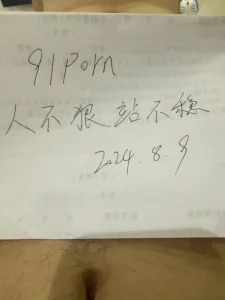 91Porn
人不狠站不稳
2024.8.9